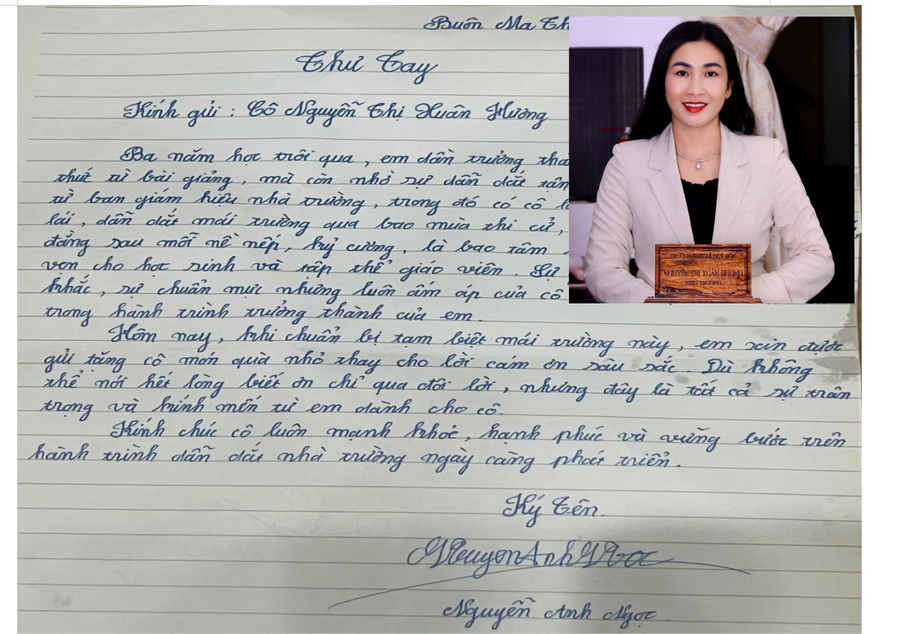 Buôn Ma Th
Thư Tay
Kính gửi : Cô Nguyễn Thị Xuân Hương
Ba năm học trôi qua, em dần trưởng tha
thứ từ bài giảng, mà còn nhờ sự dẫn dắt tận
từ ban giám hiệu nhà trường, trong đó có cô l
lái, dẫn dắt mái trường qua bao mùa thi cử,
đằng sau mỗi nề nếp, kỷ cương, là bao tâm
vọn cho học sinh và tập thể giáo viên. Sự
khắc, sự chuẩn mực nhưng luôn ấm áp của cô
trong hành trình trưởng thành của em.
Hôm nay, khi chuẩn bị tạm biệt mái trường này, em xin được
gửi tặng cô món quà nhỏ thay cho lời cám ơn sâu sắc. Dù không
thể nói hết lòng biết ơn chỉ qua đôi lời, nhưng đây là tất cả sự trân
trọng và kính mến từ em dành cho cô.
Kính chúc cô luôn mạnh khỏe, hạnh phúc và vững bước trên
hành trình dẫn dắt nhà trường ngày càng phát triển.
Ký Tên
NguyenAnhNgoc
Nguyễn Anh Ngọc
NGUYỄN THỊ XUÂN HƯƠNG